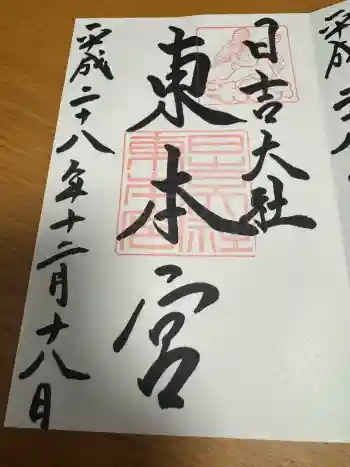 日吉大社
東本宮
平成二十八年十二月十八日
平成二